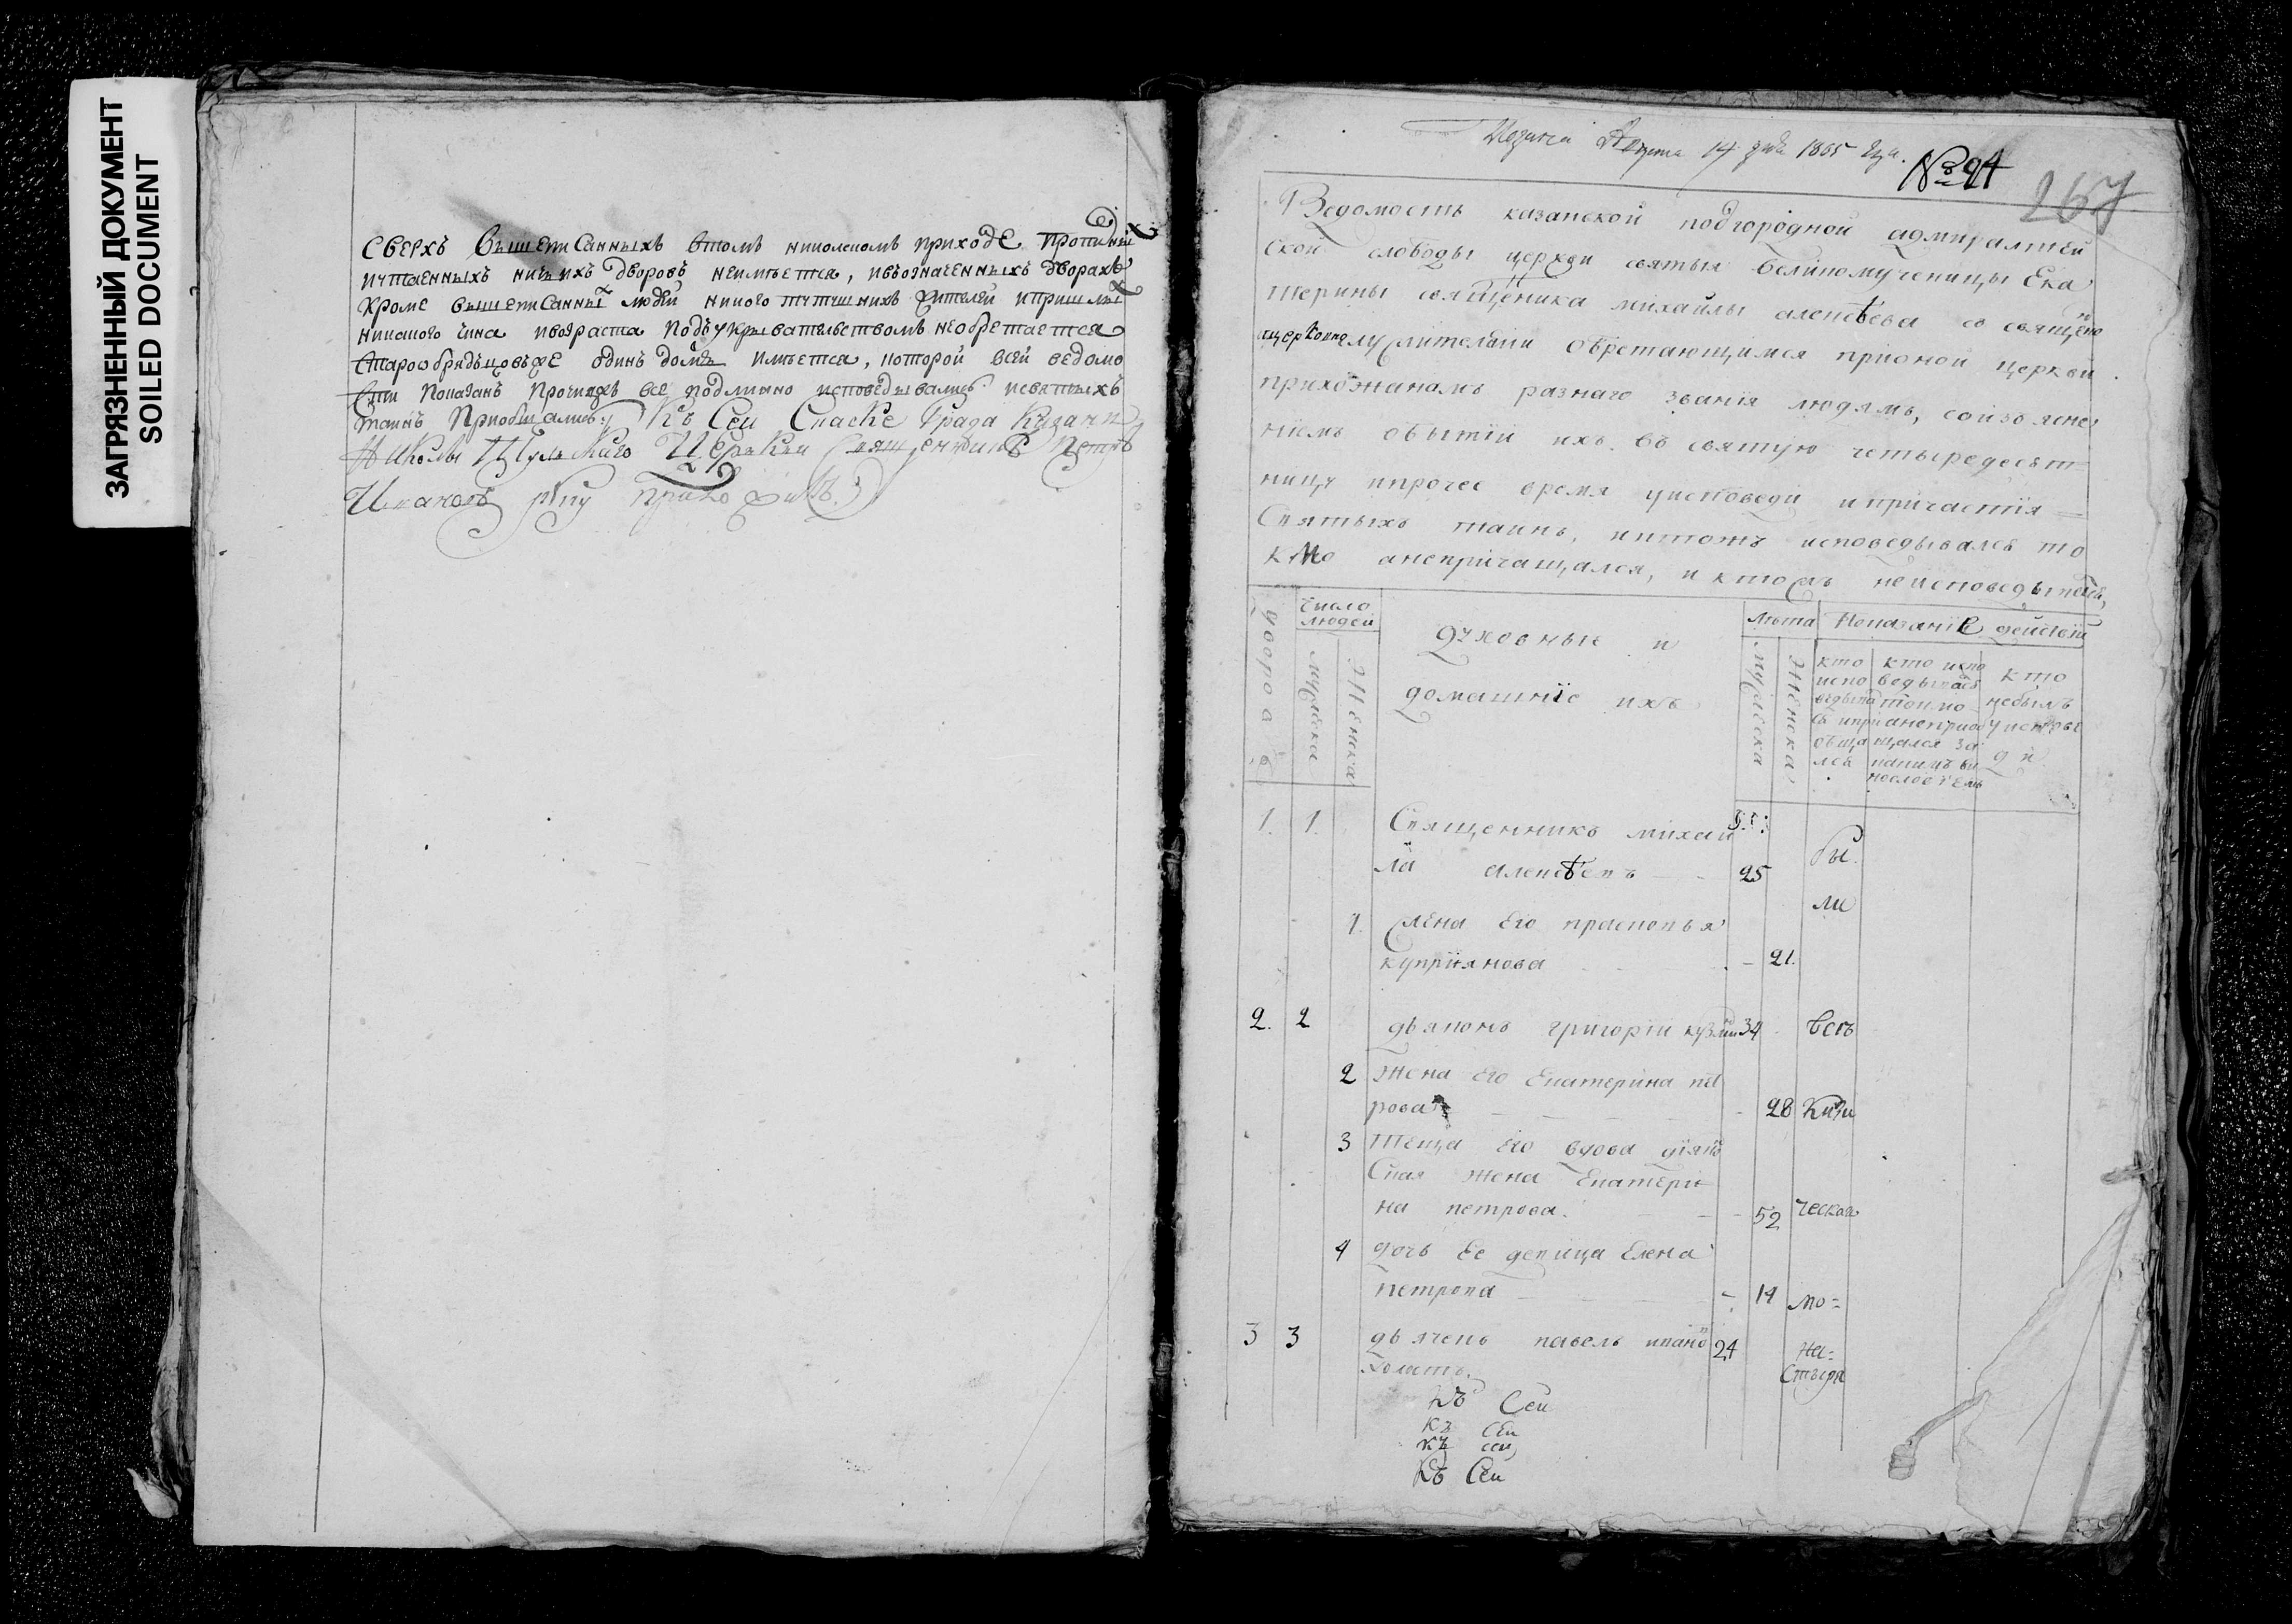 ЗАГРЯЗНЕННЫЙ ДОКУМЕНТ
SOILED DOCUMENT
сверхъ вышеписанныхъ втомъ николскомъ приходе
ничьихъ дворовъ неимѣетса, ивозначенныхъ дворахъ
кроме вышеписанны людей никого тутушнихъ жителей ипришлы
никакого чина ивозраста подъукрывательствомъ необретаетса
старообрядцовъже одинъ домъ имѣетса, которой всей ведомо
сти показанъ прочиежъ все подлинно исповедывались исвятыхъ
таинъ приобщались
Къ Сеи Скаске Града Казани
Николы Тульскаго Церкви Священникъ Петръ
Ивановъ руку приложилъ
14 дня 1865 года.
№ 24
267
Ведомость казанской подгородной адмиралтей
ской слободы церкви святыя великомученицы Ека
терины священника михайлы алексѣева со священно
церковнослужительми обретающимся прионой церкви
прихожаномъ разнаго званiя людямъ, сойзъясне
нiемъ обытiи ихъ въ святую четыредесят=
ницу ипрочее время уисповеди ипричастiя =
Святыхъ таинъ, иктожъ исповедывался то
кмо анепричащался, и ктожъ неисповедывался,
число
людей
мужеска
Женска
духовные и
домашнiе ихъ
лѣта
Показанiе действ
мужеска
Женска
кто
испо
ведыва
сь ипри
обща
лся
кто испо
ведывался
токмо
анеприоб
щался за
какимъ ви
нословiемъ
кто
небылъ
уиспове
ди
1. 1. Священникъ михай
ла алексѣевъ 25
бы
ли
1. жена его прасковья
куприянова 21.
2. 2 дьяконъ григорiи кузми 34
2 Жена его Екатерина пет
рова 28
3 Теща его вдова дiяко
ская жена Екатери
на петрова. 52
4 дочь Ее девица Елена
петрова 14
мо=
на=
стыря
3 3 дьячекъ павелъ ивано 24
холостъ.
Къ Сеи
Къ Сеи
Къ сеи
Къ Сеи